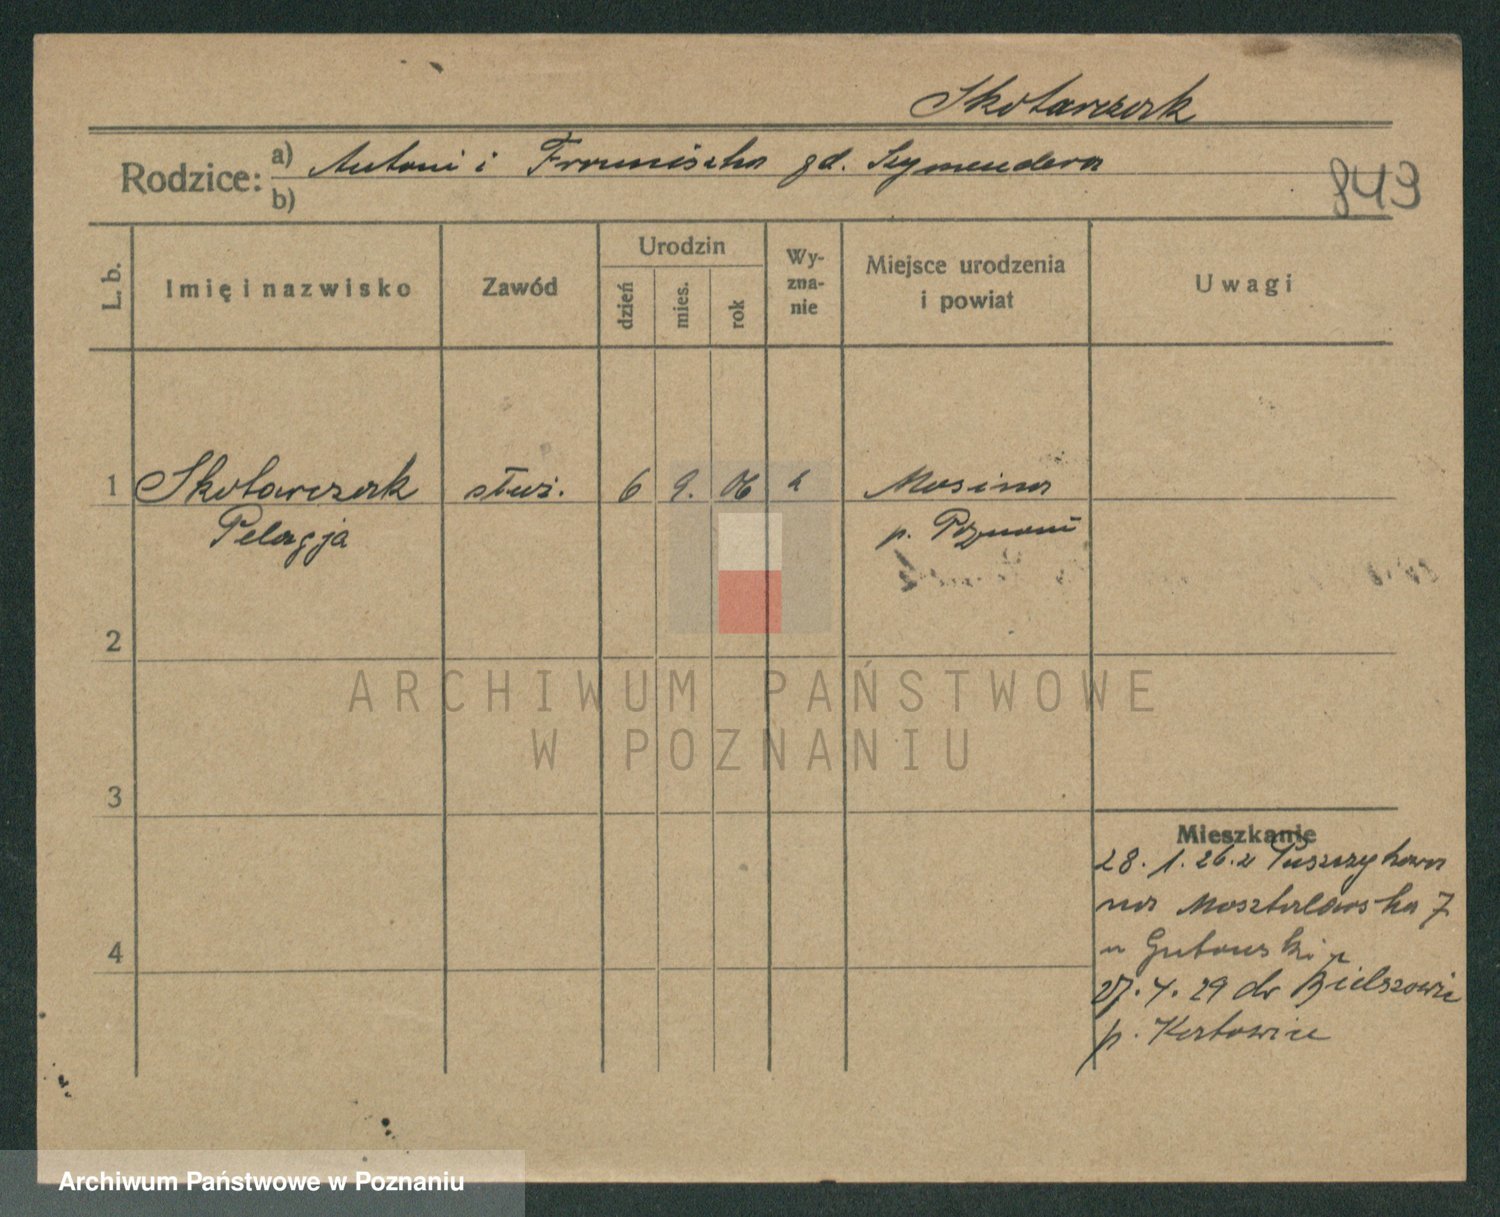 Skotarczak
Rodzice: a) Antoni i Franciszka zd. Szymendera
b)
843
L. b.
Imię i nazwisko
Zawód
Urodzin
dzień
mies.
rok
Wy-
zna-
nie
Miejsce urodzenia
i powiat
Uwagi
1 Skotarczak służ. 6 9. 06 k Mosina
Pelagja p. Poznań
2
3
4
Mieszkanie
28. 1. 26. z Puszczykowa
na Masztalarska 7
u Gutowski
27. 4. 29 do Bielszowic
p. Katowice
ARCHIWUM PAŃSTWOWE
W POZNANIU
Archiwum Państwowe w Poznaniu